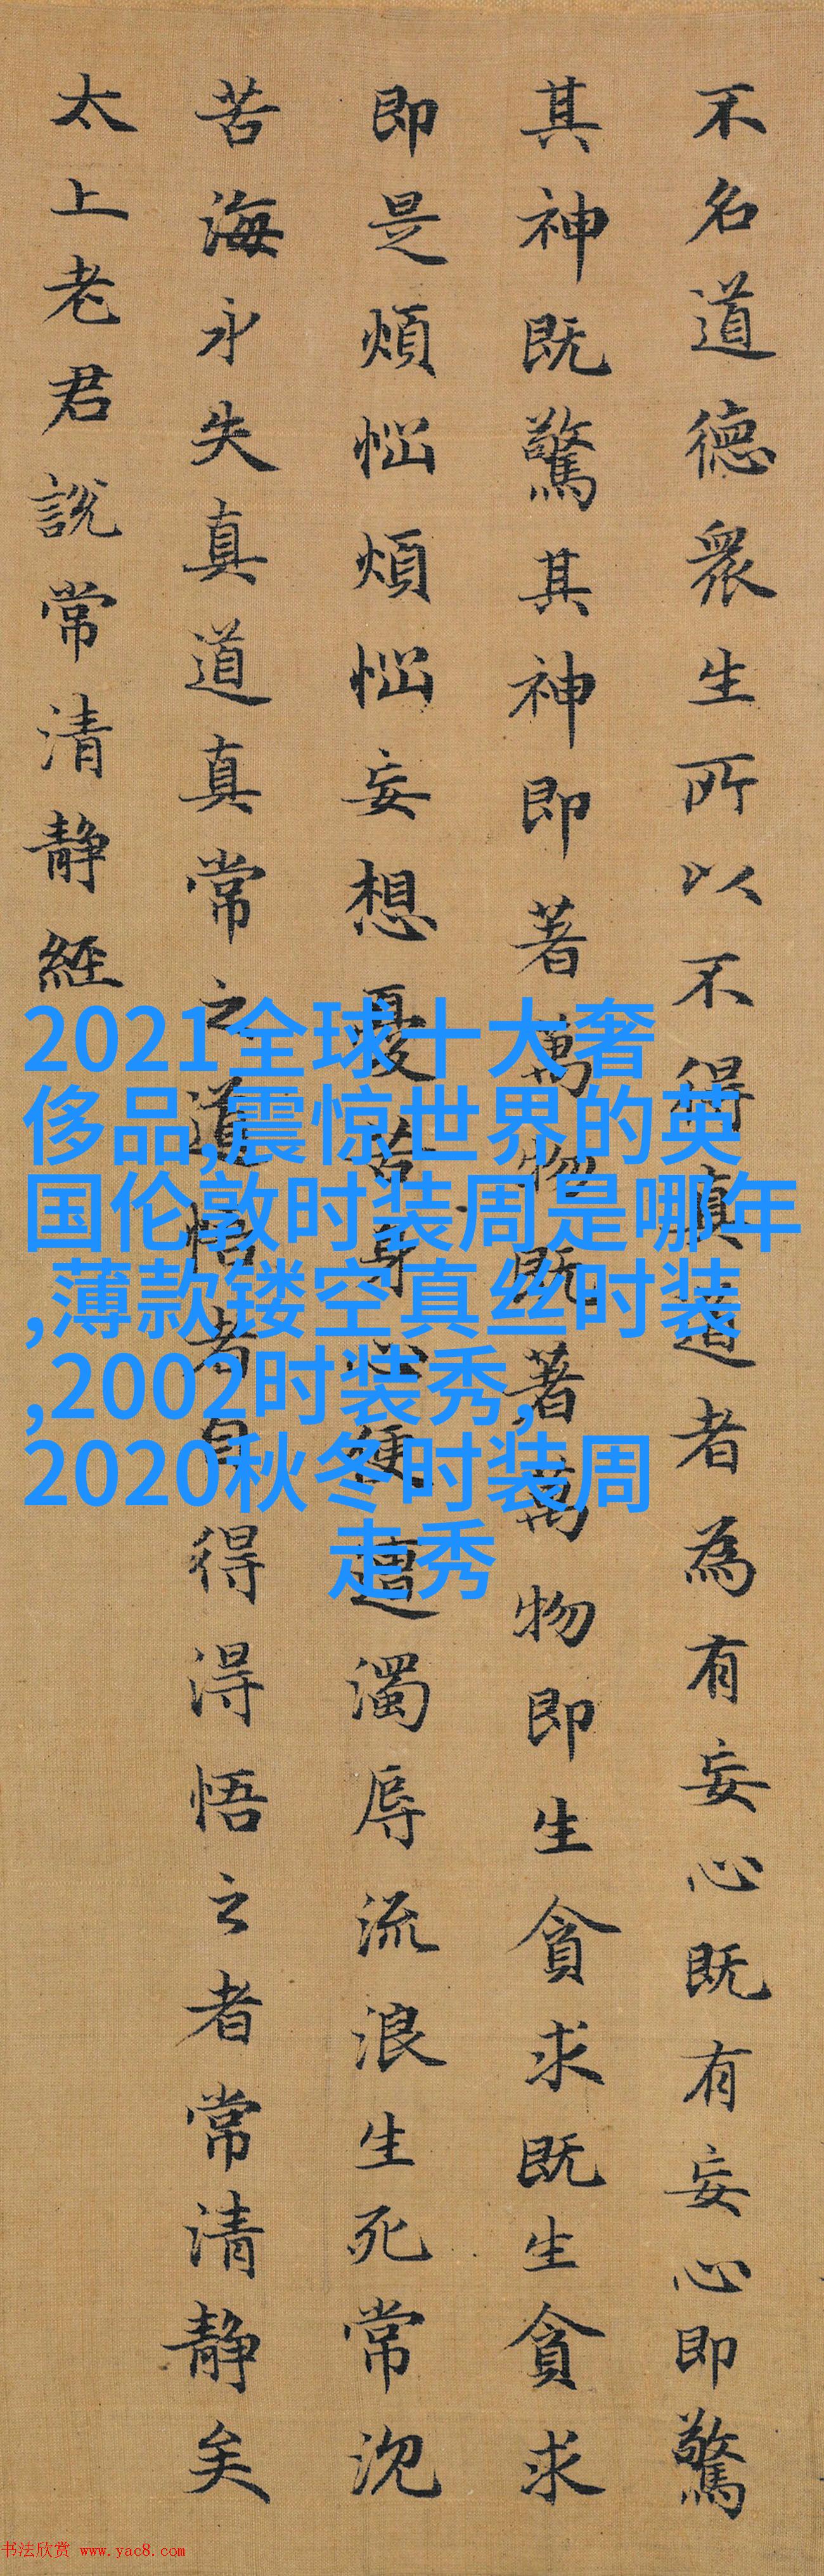 不名道德衆生所以不得真道者為有妄心既有妄心即驚
其神既驚其神即著萬物既著萬物即生貪求既生貪求
即是煩惱煩惱妄想憂苦身心便遭濁辱流浪生死常沉
苦海永失真道真常之道悟者自得得悟之者常清靜矣
太上老君說常清靜經
2021全球十大奢
侈品,震惊世界的英
国伦敦时装周是哪年
,薄款镂空真丝时装
,2002时装秀,
2020秋冬时装周
走秀
书法欣赏 www.yac8.com